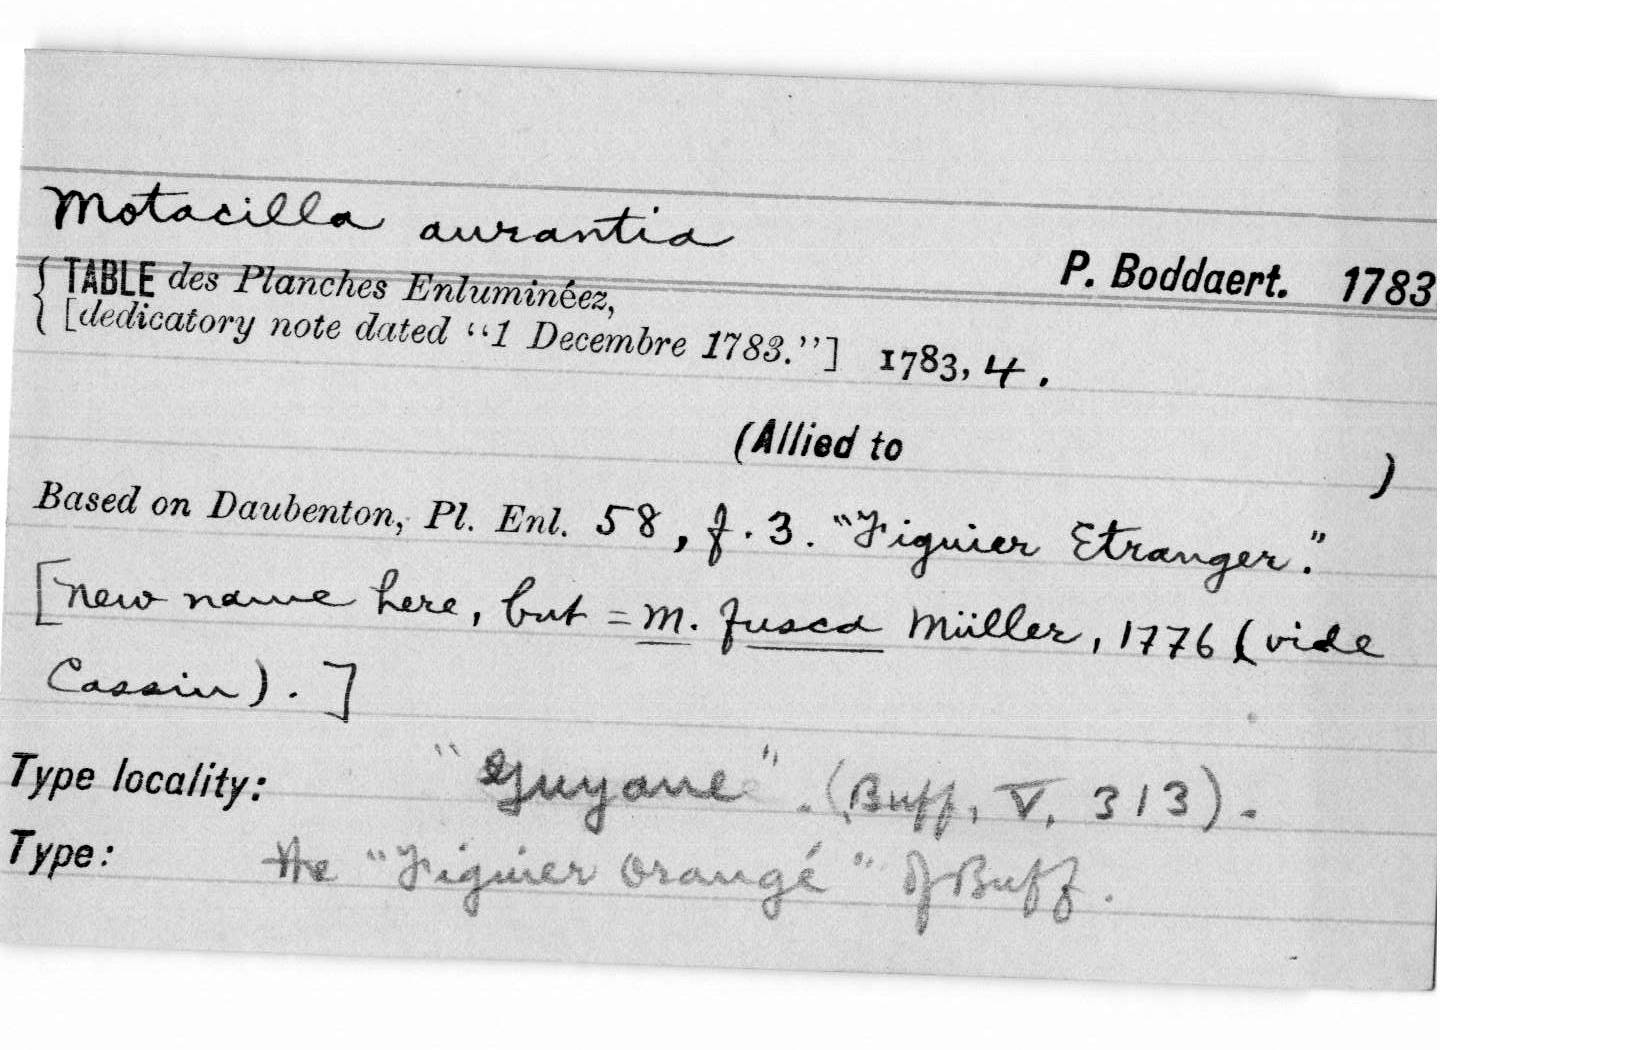 Motacilla aurantia
P. Boddaert. 1783
TABLE des Planches Enluminéez,
[dedicatory note dated “1 Decembre 1783.”] 1783, 4.
(Allied to )
Based on Daubenton, Pl. Enl. 58, f. 3. "Figuier Etranger."
[new name here, but = M. fusca Müller, 1776 (vide
Cassin). ]
Type locality: "Guyane". (Buff, V, 313).
Type: the "Figuier Orangé" of Buff.